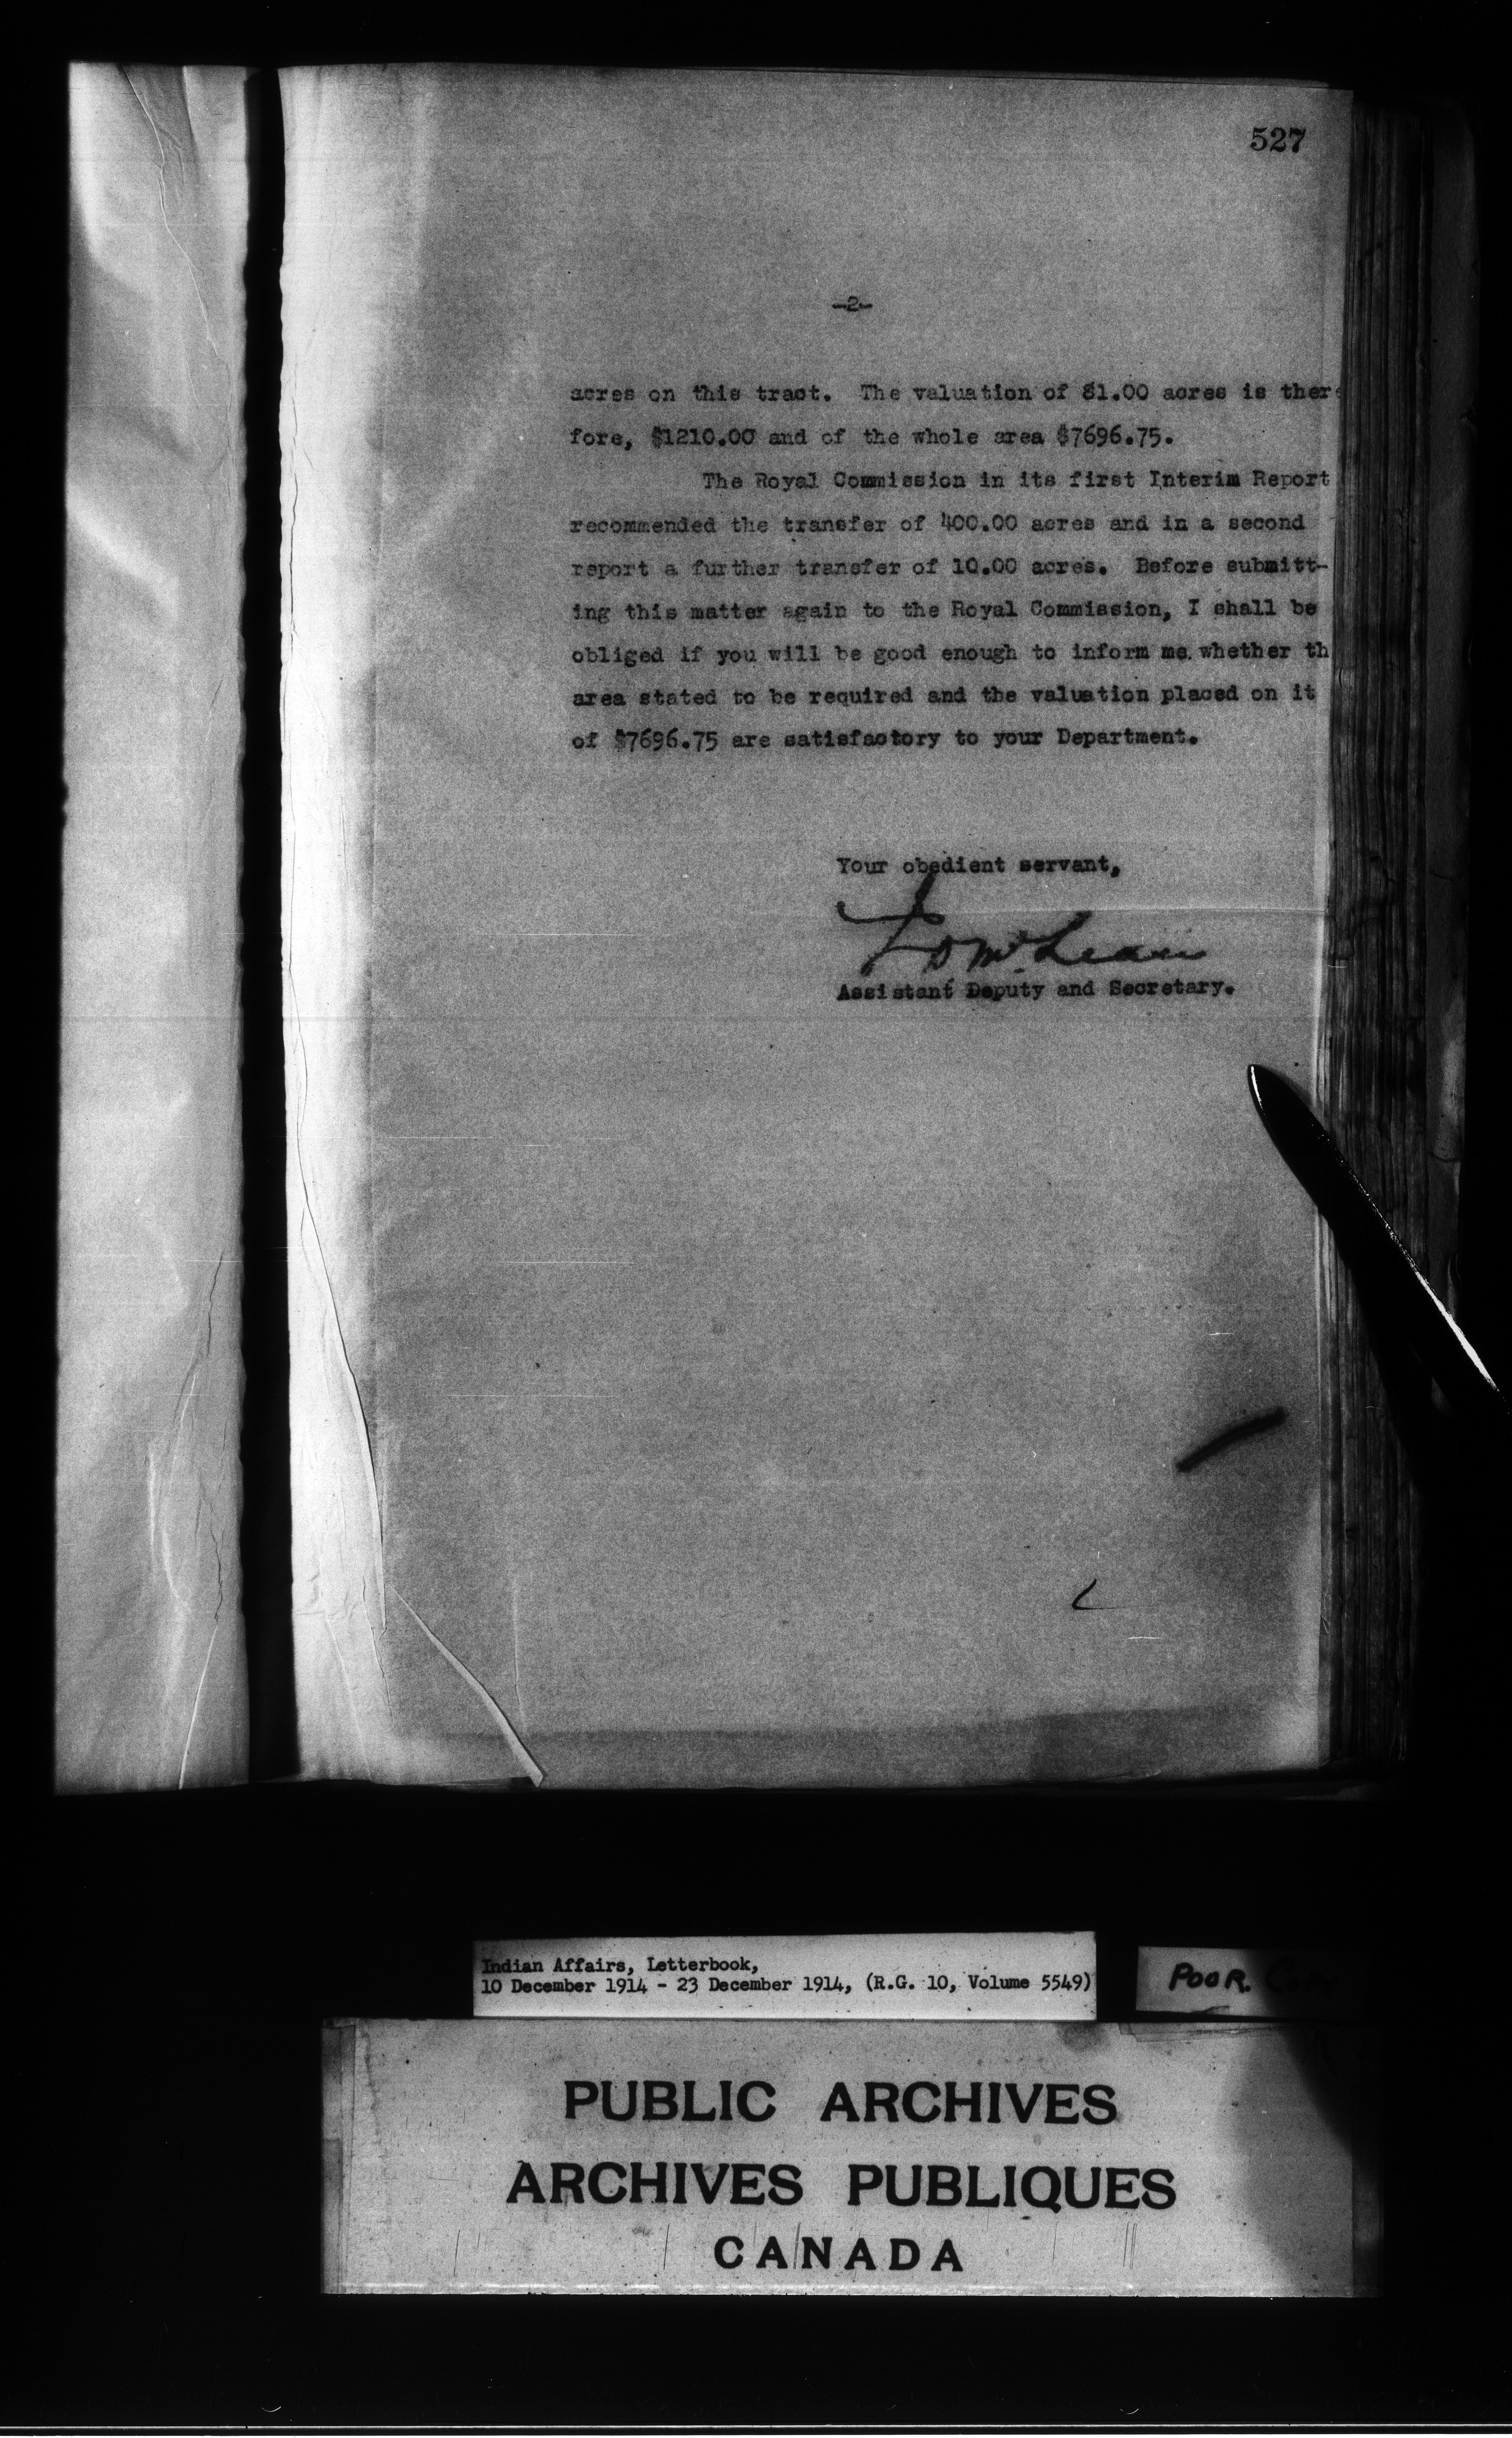 527
-2-
acres on this tract. The valuation of 81.00 acres is there
fore, $1210.00 and of the whole area $7696.75.
The Royal Commission in its first Interim Report
recommended the transfer of 400.00 acres and in a second
report a further transfer of 10.00 acres. Before submitt-
ing this matter again to the Royal Commission, I shall be
obliged if you will be good enough to inform me whether th
area stated to be required and the valuation placed on it
of $7696.75 are satisfactory to your Department.
Your obedient servant,
J D McLean
Assistant Deputy and Secretary.
Indian Affairs, Letterbook,
10 December 1914 - 23 December 1914, (R.G. 10, Volume 5549)
POOR. COPY
PUBLIC ARCHIVES
ARCHIVES PUBLIQUES
CANADA